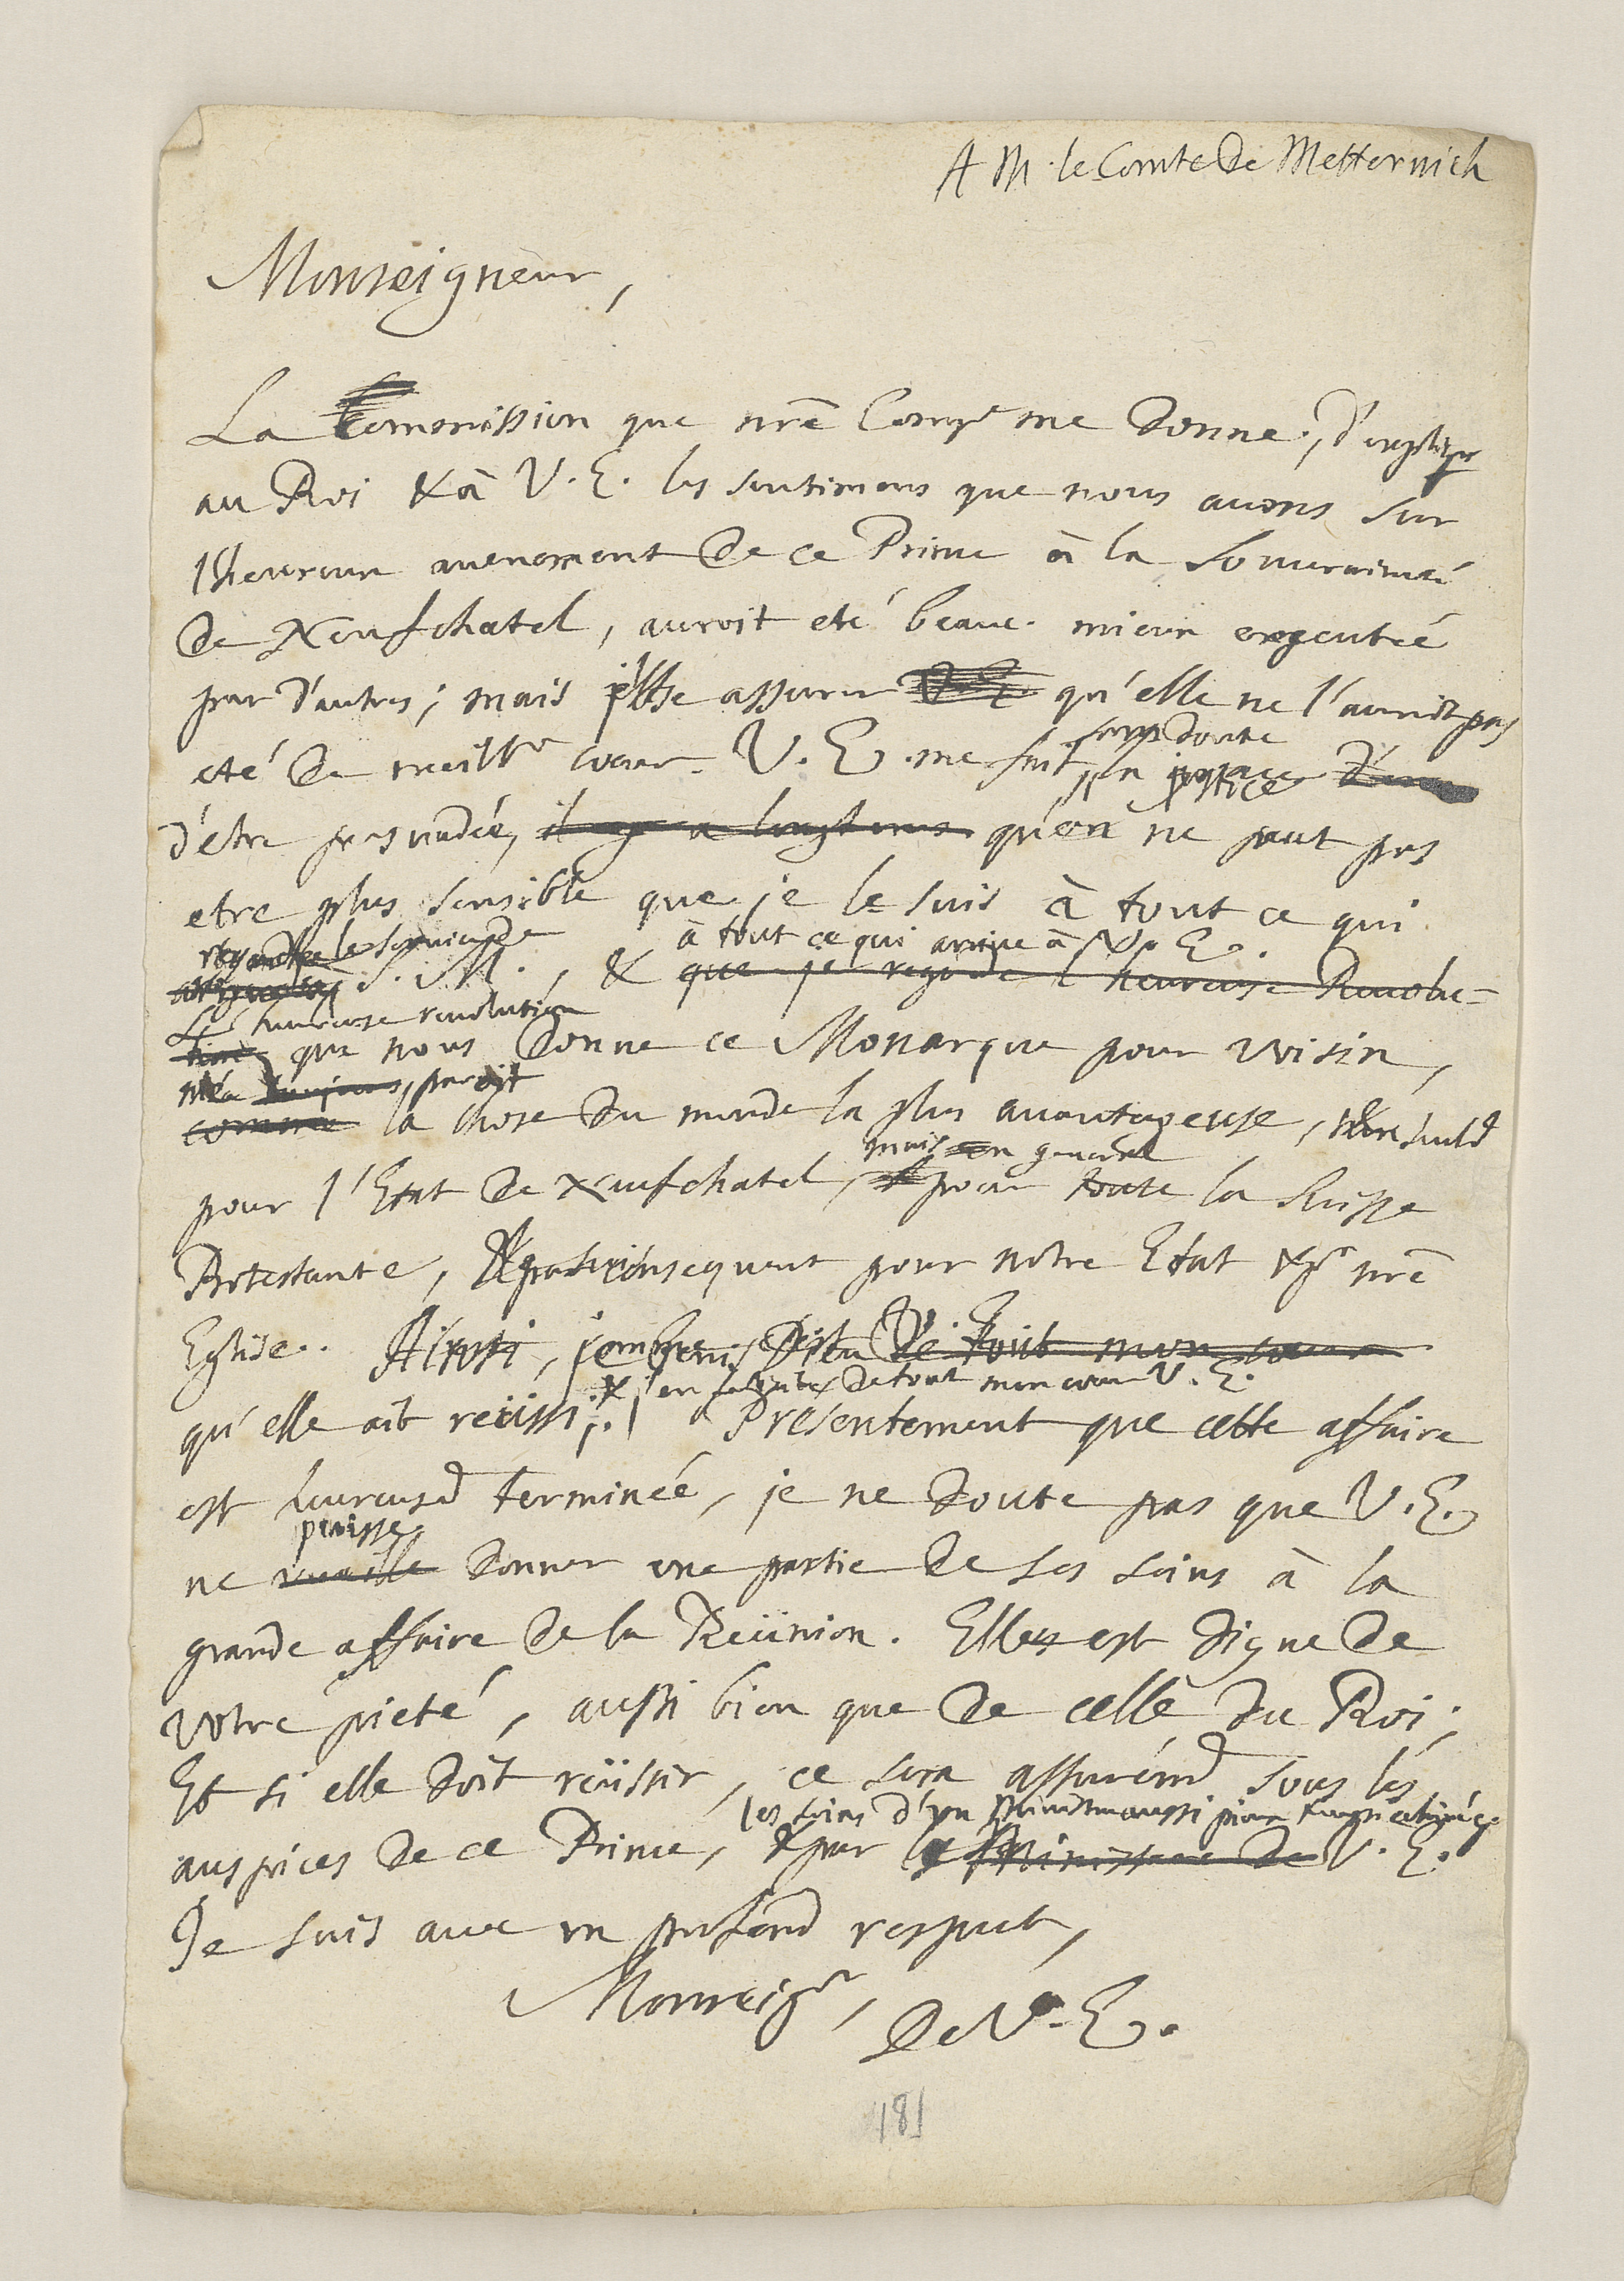 A M. le Comte De Metternich
Monseigneur,
La Commission que nre Comp.e me donne, d'expliqr
au Roi & à V. E. les sentimens que nous avons sur
l'heureux avenement de ce Prince à la Souveraineté
de Neufchatel, auroit eté beauc. mieux executée
par d'autres; mais j'ose assurer qu'elle ne l'auroit pas
eté de meillr coeur. V. E. me fait sans doute la justice
d'être persuadée, il y a longtems qu'on ne peut pas
etre plus sensible que je le suis à tout ce qui
regarde le service de à tout ce qui arrive à V. E.
S. M., & que je regarde l'heureuse Revolu=
L'heureuse revolution
tion que nous donne ce Monarque pour voisin,
m'a toujours paroit
comme la chose du monde la plus avantageuse, non seulemt
mais en general
pour l'Etat de Neufchatel, & pour toute la Suisse
Protestante, & par consequent pour notre Etat & pr nre
Eglise. Aussi, je benis Dieu de tout mon coeur
& j'en felicite de tout mon coeur V. E.
qu'elle ait reüssi. Presentement que cette affaire
est heureusemt terminée, je ne doute pas que V. E.
puisse
ne veuille donner une partie de ses soins à la
grande affaire de la Reünion. Elle est digne de
votre pieté, aussi bien que de celle du Roi;
Et si elle doit reüssir, ce sera assurémt sous les
les soins d'un Ministre aussi pieux & aussi eclairé q.
auspices de ce Prince, & par le Ministere de V. E.
Je suis avec un profond respect,
Monseigr, De V. E.
181